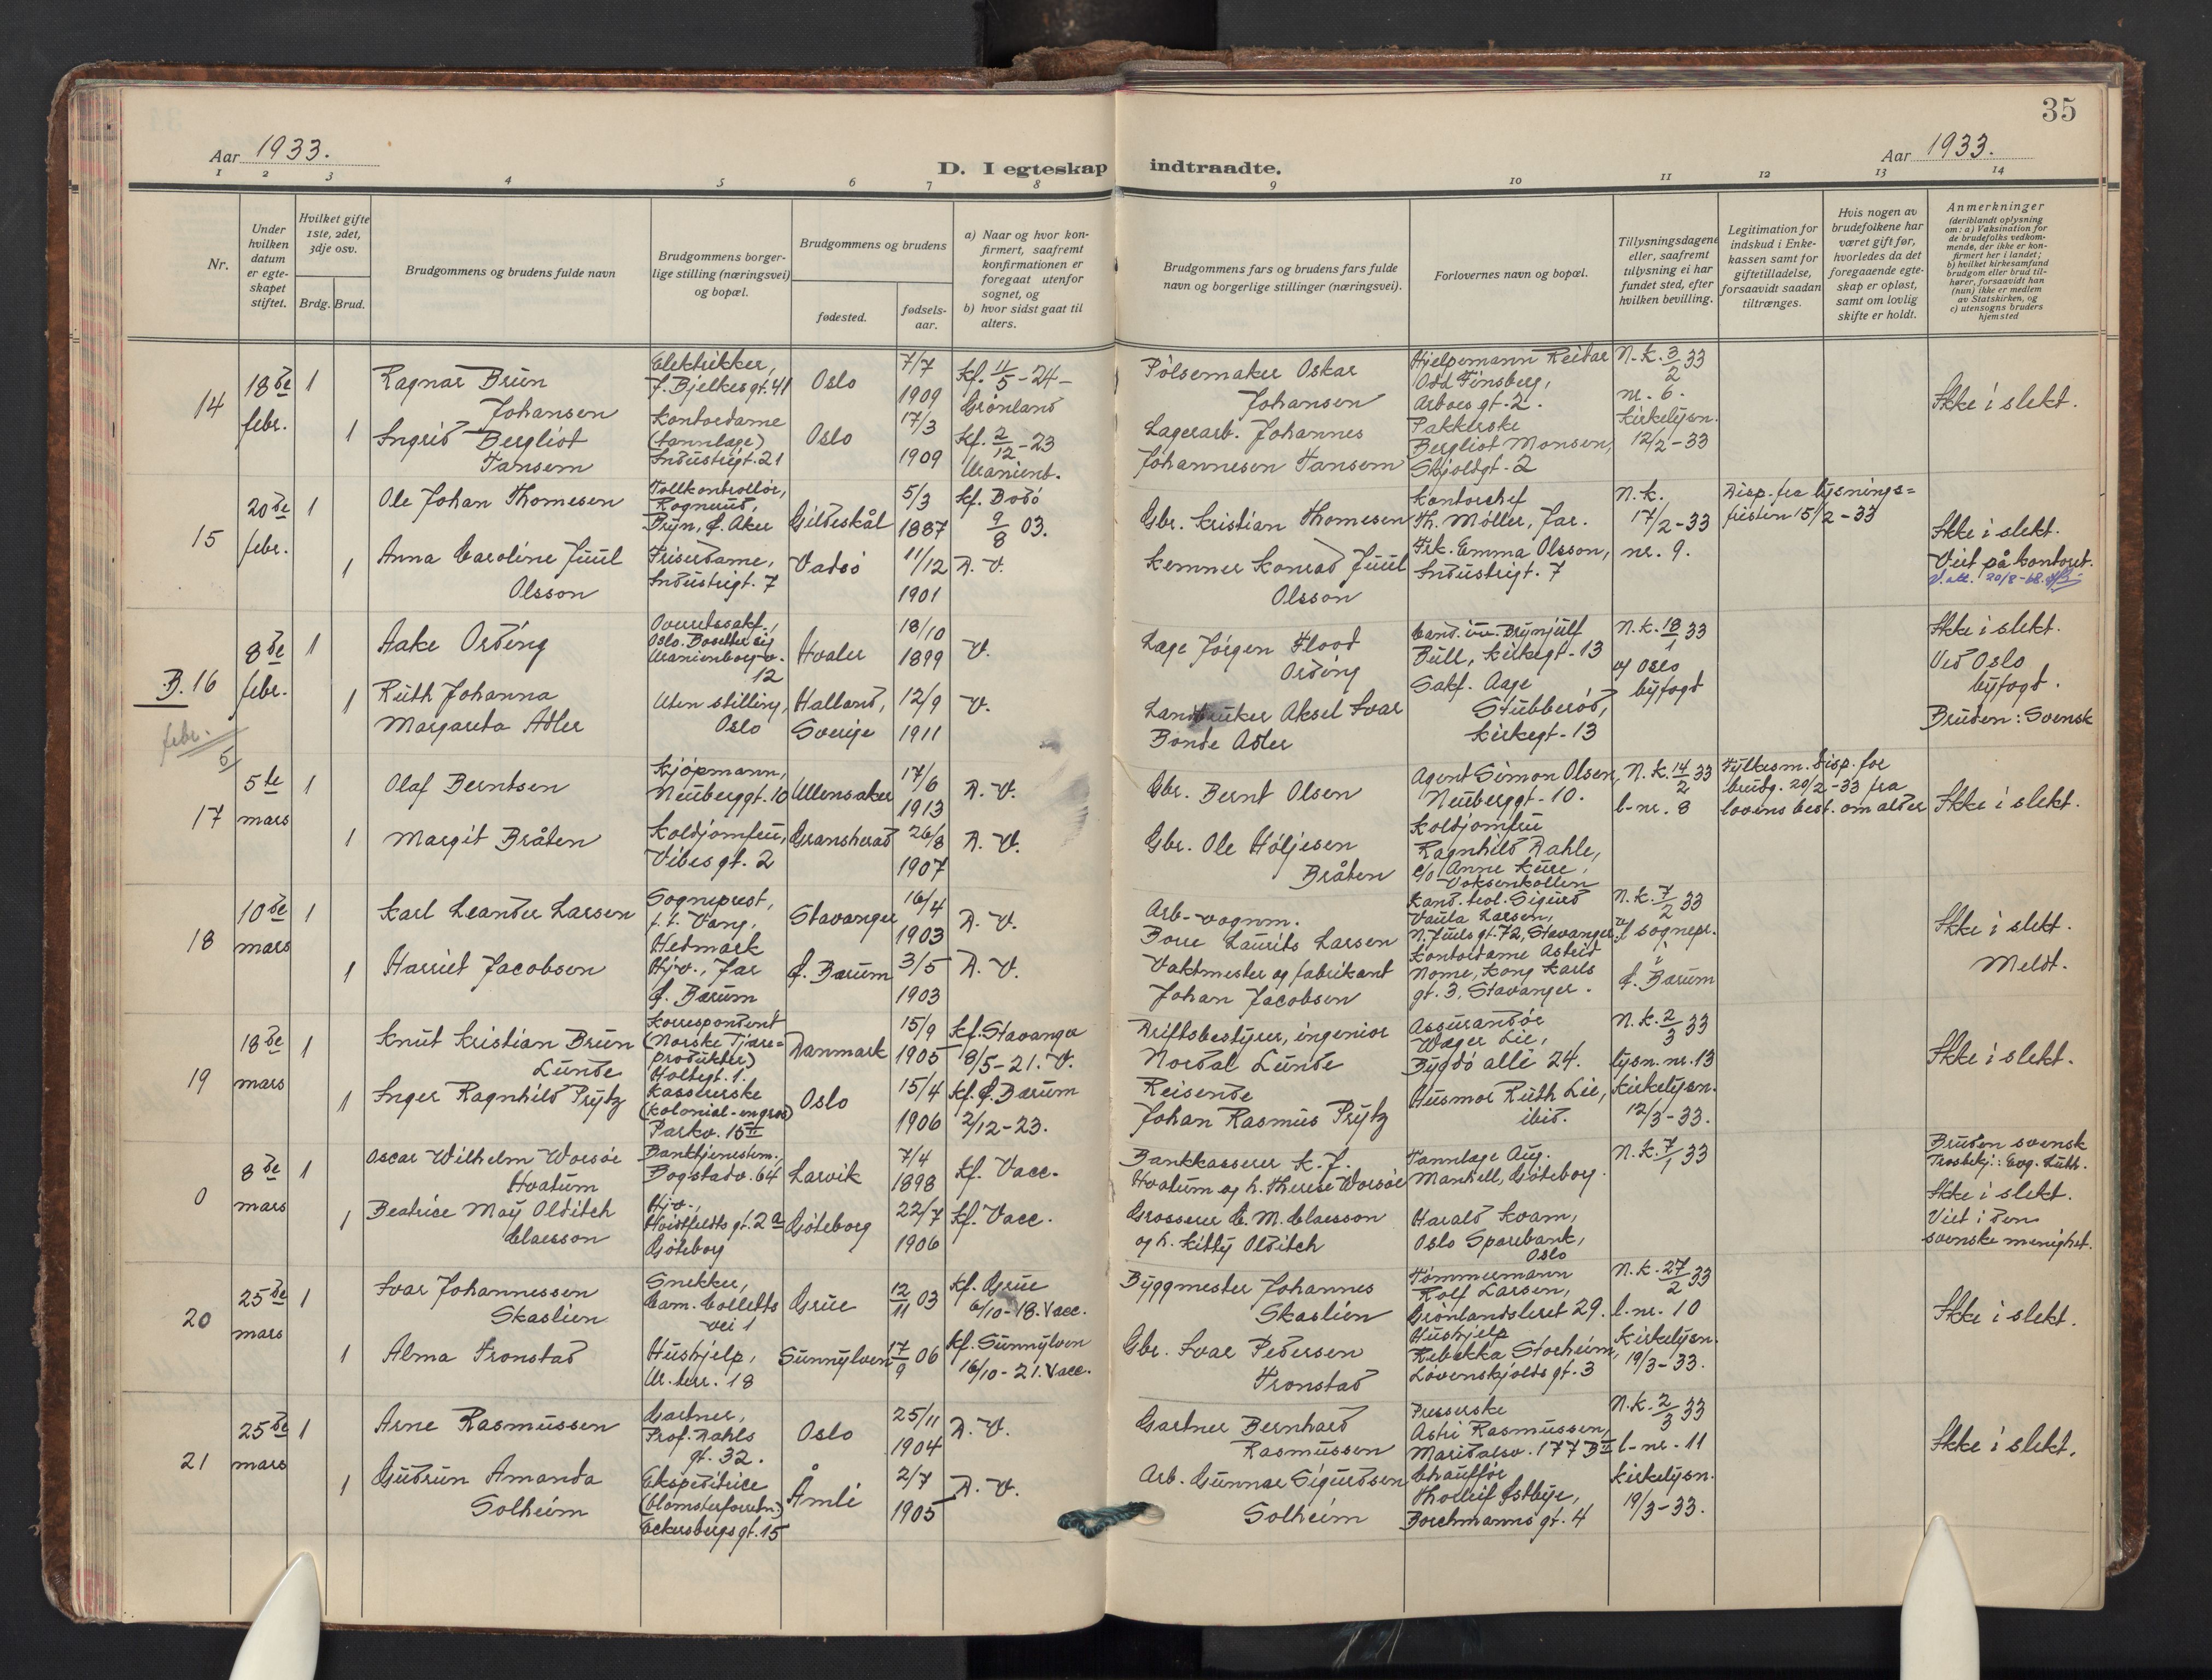 35
Aar 1933.
D. I egteskap indtraadte.
Aar 1933.
1 2 3 4 5 6 7 8 9 10 11 12 13 14
Nr.
Under hvilken datum er egteskapet stiftet.
Hvilket gifte 1ste, 2det, 3dje osv.
Brdg. Brud.
Brudgommens og brudens fulde navn
Brudgommens borgerlige stilling (næringsvei) og bopæl.
Brudgommens og brudens
fødested.
fødselsaar.
a) Naar og hvor konfirmert, saafremt konfirmationen er foregaat utenfor sognet, og
b) hvor sidst gaat til alters.
Brudgommens fars og brudens fars fulde navn og borgerlige stillinger (næringsvei).
Forlovernes navn og bopæl.
Tillysningsdagene eller, saafremt tillysning ei har fundet sted, efter hvilken bevilling.
Legitimation for indskud i Enkekassen samt for giftetilladelse, forsaavidt saadan tiltrænges.
Hvis nogen av brudefolkene har været gift før, hvorledes da det foregaaende egteskap er opløst, samt om lovlig skifte er holdt.
Anmerkninger
(deriblandt oplysning om: a) Vaksination for de brudefolks vedkommende, der ikke er konfirmert her i landet; b) hvilket kirkesamfund brudgom eller brud tilhører, forsaavidt han (hun) ikke er medlem av Statskirken, og c) utensogns bruders hjemsted
14
18de febr.
1
Ragnar Brun Johansen
Elektrikker, J. Bjelkesgt. 41
Oslo
7/7 1909
kf. 11/5-24- Grönland
Pølsemaker Oskar Johansen
Hjelpemann Reidar Odd Tinsberg, Arboes gt. 2.
N.k. 3/2 33 nr. 6.
Ikke i slekt.
1
Ingrid Bergliot Tansem
Kontordame (tannlæge) Industrigt. 21
Oslo
17/3 1909
kf. 2/12-23 Uranienb.
Lagerarb. Johannes Johannesen Tansem
Pakkerske Bergliot Monsen, Skjoldgt. 2
Kirkelysn. 12/2-33
15
20de febr.
1
Ole Johan Thomesen
Tollkontrollør, Rognund, Bryn, Ø. Aker
Gildeskål
5/3 1887
kf. Bodö 9/8 03.
Gbr. Kristian Thomesen
Kontorchef Th. Møller, Jar.
N.k. 17/2-33 nr. 9.
Disp. fra lysningsfristen 15/2-33
Ikke i slekt.
Viet på kontoret.
V.att. 20/8-68.
1
Anna Caroline Juul Olsson
Friserdame, Industrigt. 7
Vadsö
11/12 1901
D. V.
Kemner Konrad Juul Olsson
Frk. Emma Olsson, Industrigt. 7
B. 16
febr. 5/
8de febr.
1
Aake Ording
Overretssakf., Oslo. Bosetter sig Uranienborgv. 12
Hvaler
18/10 1899
V.
Læge Jørgen Flood Ording
Cand. jur. Brynjulf Bull, Kirkegt. 13
N.k. 18/1 33
v/ Oslo byfogd
Ikke i slekt.
Ved Oslo byfogd.
Bruden: Svensk
1
Ruth Johanna Margareta Adler
Uten stilling, Oslo
Halland, Sverige
12/9 1911
V.
Landbruker Aksel Ivar Bonde Adler
Sakf. Aage Stubberød, Kirkegt. 13
17
5te mars
1
Olaf Berntsen
Kjöpmann, Neuberggt. 10
Ullensaker
17/6 1913
D. V.
Gbr. Bernt Olsen
Agent Simon Olsen, Neuberggt. 10.
N.k. 14/2 33
l-nr. 8
Fylkesm. disp. for brudg. 20/2-33 fra lovens best. om alder
Ikke i slekt.
1
Margit Bråten
Koldjomfru, Vibesgt. 2
Gransherad
26/8 1907
D. V.
Gbr. Ole Höljesen Bråten
Koldjomfru Ragnhild Dahle, c/o Anne Kure, Voksenkollen
18
10de mars
1
Karl Leander Larsen
Sogneprest, f.t. Vang, Hedmark
Stavanger
16/4 1903
D. V.
Arb.-vognm. Borre Laurits Larsen
Kand. teol. Sigurd Vaula Larsen, N. Juels gt. 72, Stavanger.
N.k. 7/2 33
v/ sognepr. i Ø. Bærum
Ikke i slekt.
Meldt.
1
Harriet Jacobsen
Hj.v., Jar Ø. Bærum
Ø. Bærum
3/5 1903
D. V.
Vaktmester og fabrikant Johan Jacobsen
Kontordame Astrid Nome, Kong Karls gt. 3, Stavanger.
19
18de mars
1
Knut Kristian Brun Lunde
Korrespondent (Norske Tjæreprodukter) Holtegt. 1.
Danmark
15/9 1905
kf. Stavanger 8/5-21. V.
Driftsbestyrer, ingeniør Nordal Lunde
Assurandör Wæger Lie, Bygdö allé 24.
N.k. 2/3 33
lysn. nr. 13
Ikke i slekt.
1
Inger Ragnhild Prytz
Kassererske (kolonial-engros) Parkv. 15 II
Oslo
15/4 1906
kf. Ø. Bærum 2/12-23.
Reisende Johan Rasmus Prytz
Husmor Ruth Lie, ibid.
Kirkelysn. 12/3-33.
0
8de mars
1
Oscar Wilhelm Worsöe Hvatum
Banktjenestem., Bogstadv. 64
Larvik
7/4 1898
kf. Vacc.
Bankkasserer K. J. Hvatum og h. Therese Worsöe
Tannlæge Aug. Manhell, Göteborg.
N.k. 7/1 33
Bruden svensk
Trosbekj.: Evg. Luth.
Ikke i slekt.
Viet i den svenske menighet.
1
Beatrice May Olditch Claesson
Hj.v., Hvidtfeldts gt. 2 a Göteborg
Göteborg
22/7 1906
kf. Vacc.
Grosserer C. M. Claesson og h. Kitty Olditch
Harald Kvam, Oslo Sparebank, Oslo
20
25de mars
1
Ivar Johannessen Skaslien
Snekker, Cam. Colletts vei 1
Grue
12/11 03
kf. Grue 6/10-18. Vacc.
Byggmester Johannes Skaslien
Tømmermann Rolf Larsen, Grønlandsleret 29.
N.k. 27/2 33
l-nr. 10
Ikke i slekt.
1
Alma Tronstad
Hushjelp, Ul. terr. 18
Sunnylven
17/9 06
kf. Sunnylven 16/10-21. Vacc.
Gbr. Ivar Pedersen Tronstad
Hushjelp Rebekka Storheim, Løvenskjolds gt. 3
Kirkelysn. 19/3-33.
21
25de mars
1
Arne Rasmussen
Gartner, Prof. Dahls gt. 32.
Oslo
25/11 1904
D. V.
Gartner Bernhard Rasmussen
Presserske Astri Rasmussen, Maridalsv. 177 B II
N.k. 2/3 33
l-nr. 11
Ikke i slekt.
1
Gudrun Amanda Solheim
Ekspeditrice (blomsterforretn.) Eckersbergsgt. 15
Åmli
2/7 1905
D. V.
Arb. Gunnar Sigurdsen Solheim
Chauffør Thorleif Østbye, Borchmanns gt. 4
Kirkelysn. 19/3-33.